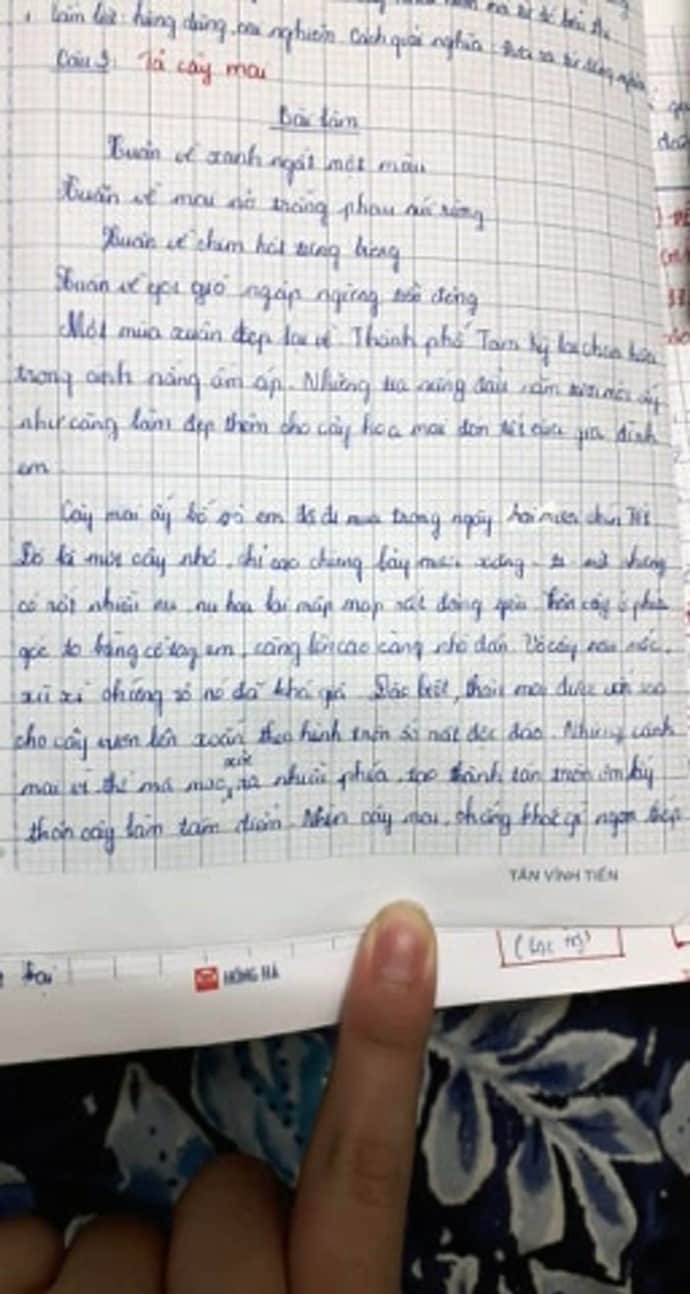 làm lẽ: hùng dũng, oai nghiêm. Cách giải nghĩa: đưa ra từ đồng nghĩa
Câu 3: Tả cây mai
Bài làm
Xuân về xanh ngát một màu
Xuân về mai nở trắng phau núi rừng
Xuân về chim hót tưng bừng
Xuân về gọi gió ngập ngừng
Một mùa xuân đẹp lại về. Thành phố Tam Kỳ lại chan hòa
trong ánh nắng ấm áp. Những tia nắng đầu năm mới ấy
như càng làm đẹp thêm cho cây hoa mai đón tết của gia đình
em
Cây mai ấy bố và em đã đi mua trong ngày hai mươi chín Tết
Đó là một cây nhỏ, chỉ cao chừng bảy mươi xăng-ti-mét nhưng
có rất nhiều nụ, nụ hoa lại mập mạp rất đáng yêu. Thân cây ở phần
gốc to bằng cổ tay em, càng lên cao càng nhỏ dần. Vỏ cây nâu mốc,
xù xì chứng tỏ nó đã khá già. Đặc biệt, thân mai được uốn
cho cây vươn lên xoắn theo hình tròn ốc rất độc đáo. Những cành
mai vì thế mà mọc xòe ra nhiều phía, tạo thành tán tròn ôm lấy
thân cây làm tâm điểm. Nhìn cây mai, chẳng khác gì ngọn tháp
TÂN VĨNH TIẾN
HỒNG HÀ